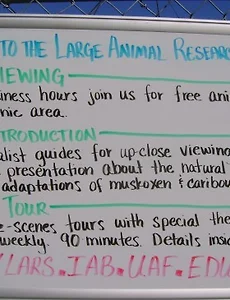 TO THE LARGE ANIMAL RESEARC
VIEWING
iness hours join us for free ani
nic area.
TRODUCTION
alist guides for up-close viewing
presentation about the natural
adaptations of muskoxen & caribou
TOUR
e-scenes tours with special the
weekly. 90 minutes. Details insid
LARS.IAB.UAF.EDU